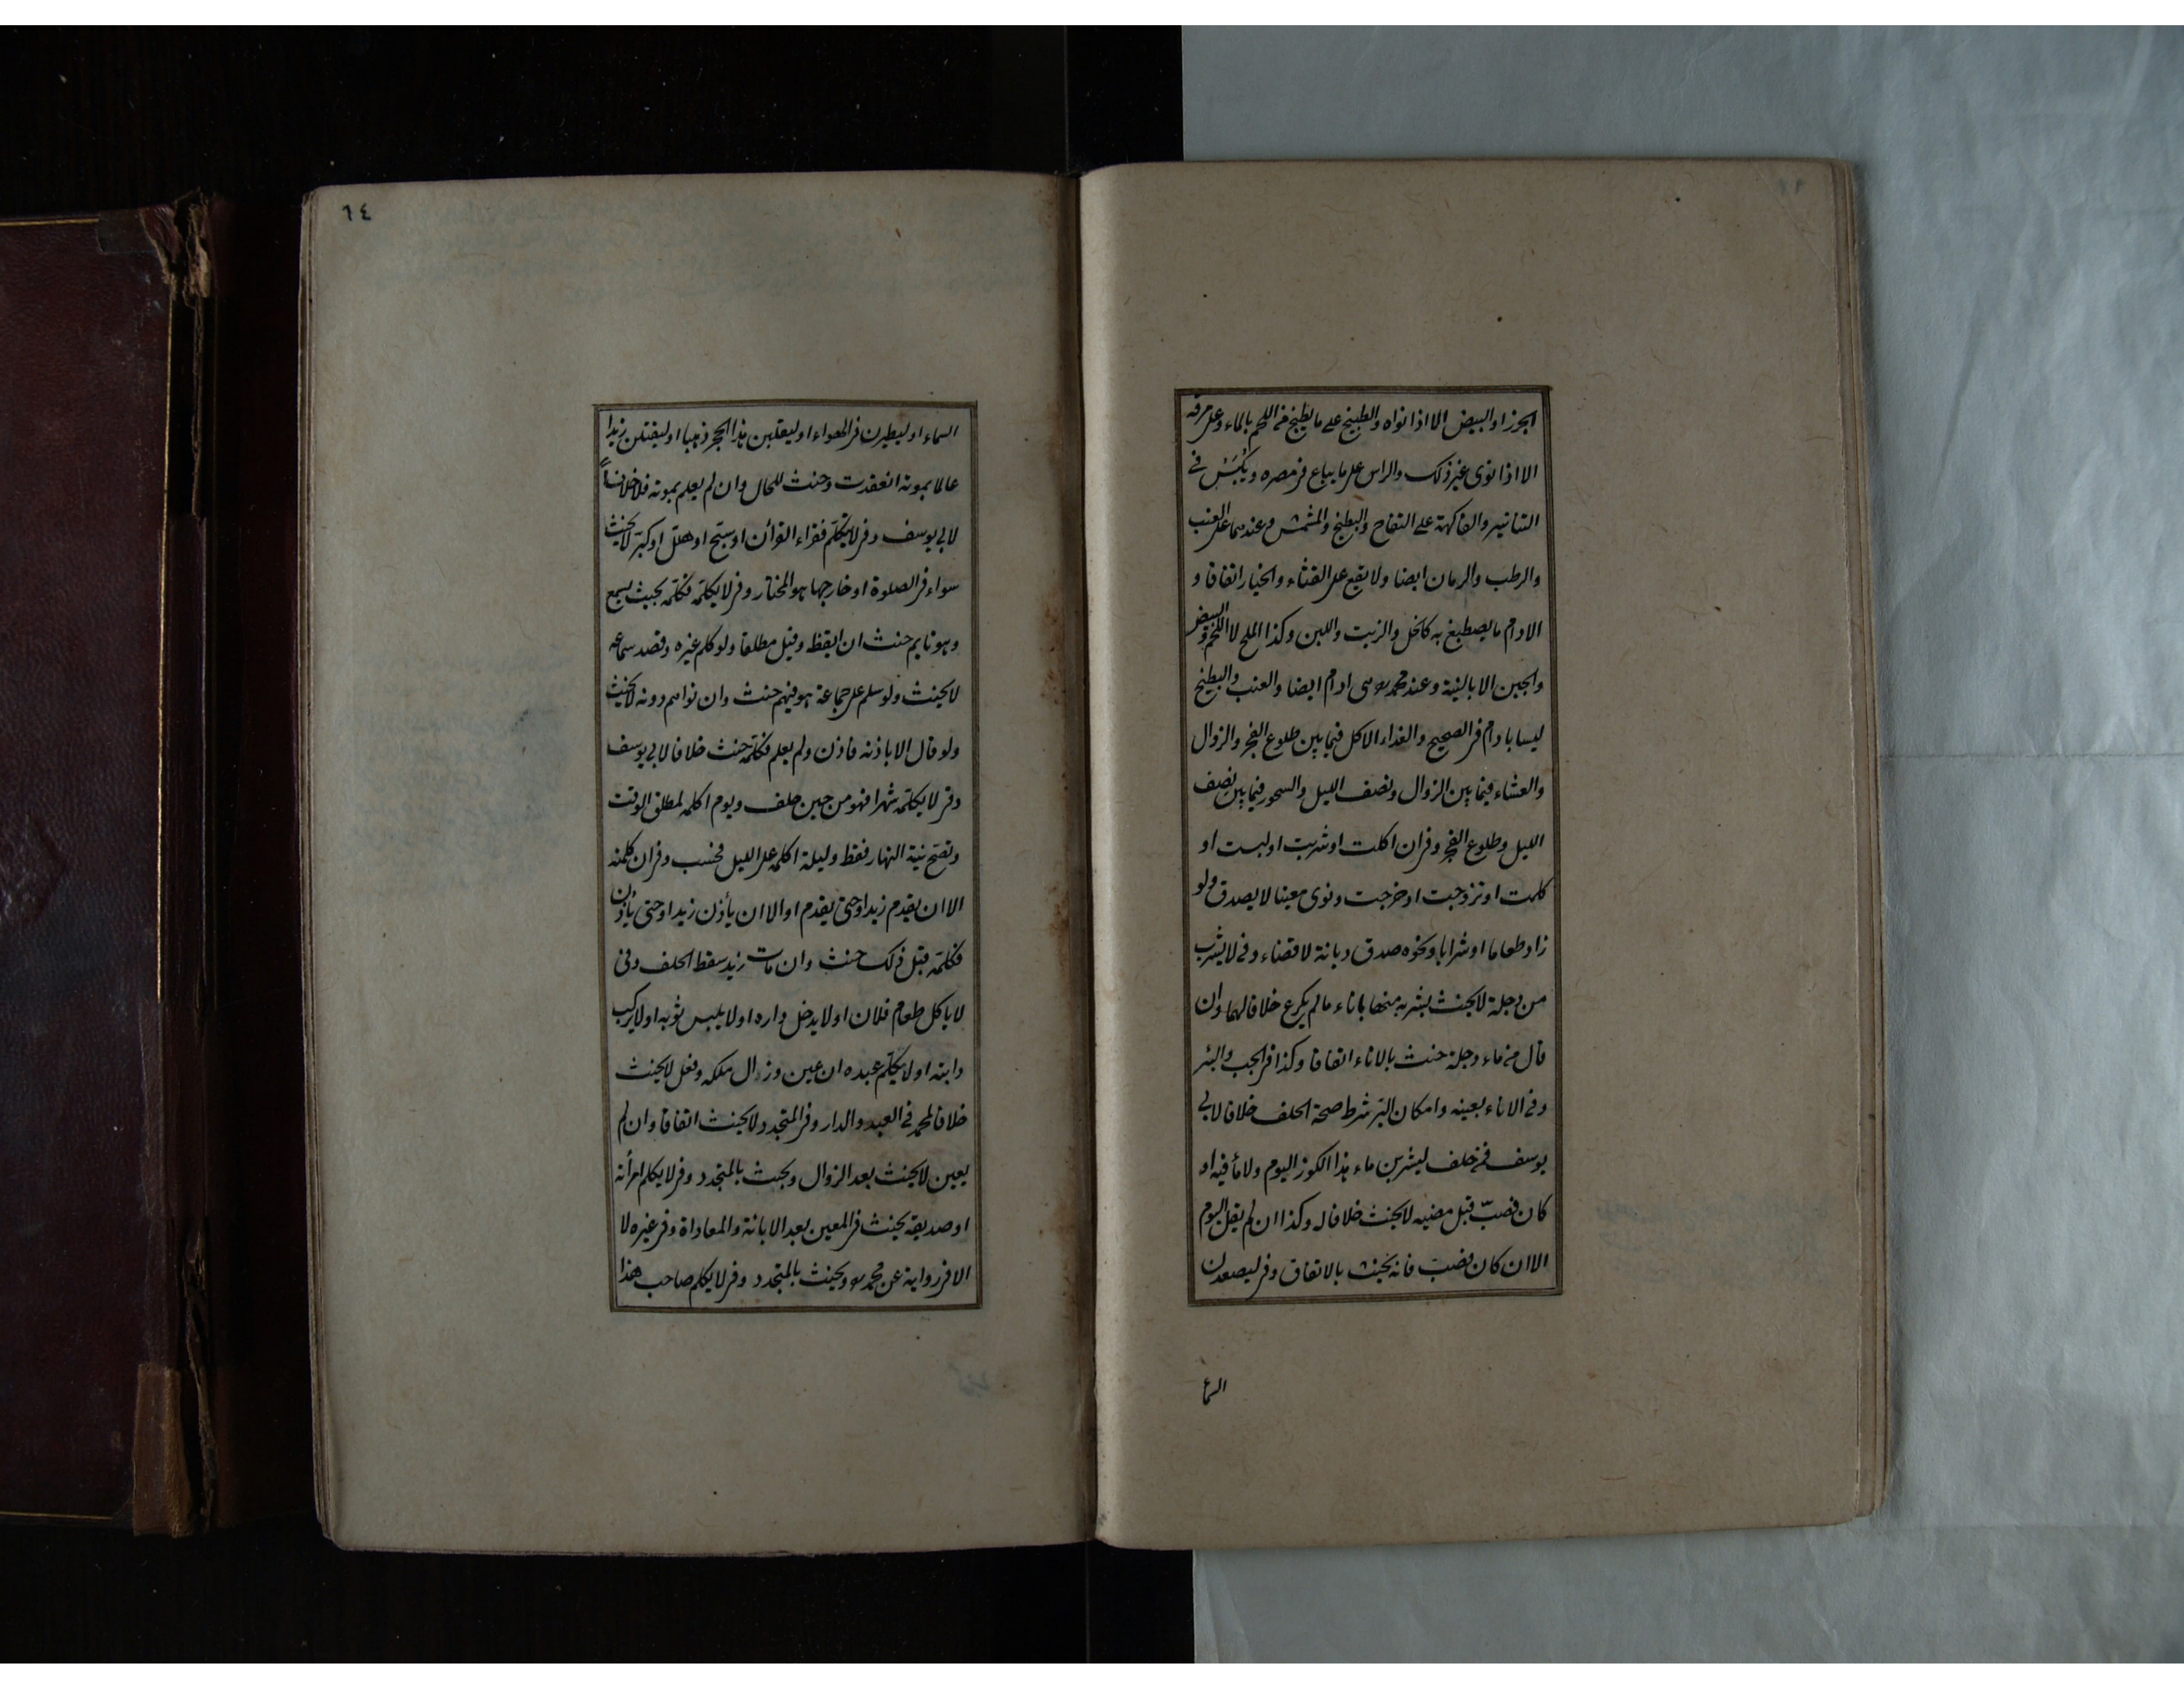 الجزر او البيض الا اذا نواه والطبيخ على ما يطبخ من اللحم بالماء وعلى مرقه
الا اذا نوى غير ذلك والراس على ما يباع فى مصره ويُكْبَسُ فى
التنانير والفاكهة على التفاح والبطيخ والمشمش وعندهما على العنب
والرطب والرمان ايضا ولا يقع على القثاء والخيار اتفاقا و
الادام ما يصطبغ به كالخل والزيت واللبن وكذا الملح لا اللحم والبيض
والجبن الا بالنية وعند محمد هى ادام ايضا والعنب والبطيخ
ليسا بادام فى الصحيح والغداء الاكل فيما بين طلوع الفجر والزوال
والعشاء فيما بين الزوال ونصف الليل والسحور فيما بين نصف
الليل وطلوع الفجر وفى ان اكلت او شربت او لبست او
كلمت او تزوجت او خرجت ونوى معينا لا يصدق ولو
زاد طعاما او شرابا ونحوه صدق ديانة لا قضاء وفى لا يشرب
من دجلة لا يحنث بشربه منها باناء ما لم يكرع خلافا لهما وان
قال من ماء دجلة حنث بالاناء اتفاقا وكذا فى الجب والبئر
وفى الاناء بعينه وامكان البرّ شرط صحة الحلف خلافا لابى
يوسف فمن حلف ليشربن ماء هذا الكوز اليوم ولا ماء فيه او
كان فصبّ قبل مضيه لا يحنث خلافا له وكذا ان لم يقل اليوم
الا ان كان فصب فانه يحنث بالاتفاق وفى ليصعدن
السماء
٦٤
السماء او ليطيرن فى الهواء او ليقلبن هذا الحجر ذهبا او ليقتلن زيدا
عالما بموته انعقدت وحنث للحال وان لم يعلم بموته فلا خلافاً
لابى يوسف وفى لا يتكلّم فقراء القرأن او سبّح او هلّل او كبّر لا يحنث
سواء فى الصلوة او خارجها هو المختار وفى لا يكلّمه فكلّمه بحيث يسمع
وهو نايم حنث ان ايقظ وقيل مطلقا ولو كلم غيره وقصد سماعه
لا يحنث ولو سلم على جماعة هو فيهم حنث وان نواهم دونه لا يحنث
ولو قال الا باذنه فاذن ولم يعلم فكلّمه حنث خلافا لابى يوسف
وفى لا يكلّمه شهرا فهو من حين حلف ويوم اكلمه لمطلق الوقت
وتصح نية النهار فقط وليلة اكلمه على الليل فحسب وفى ان كلمته
الا ان يقدم زيد او حتى يقدم او الا ان يأذن زيد او حتى يأذن
فكلّمه قبل ذلك حنث وان مات زيد سقط الحلف وفى
لا ياكل طعام فلان او لا يدخل داره او لا يلبس ثوبه او لا يركب
دابته او لا يكلّم عبده ان عين وزال ملكه وفعل لا يحنث
خلافا لمحمد فى العبد والدار وفى المتجدد لا يحنث اتفاقا وان لم
يعين لا يحنث بعد الزوال ويحنث بالمتجدد وفى لا يكلم امرأته
او صديقه يحنث فى المعين بعد الابانة والمعاداة وفى غيره لا
الا فى رواية عن محمد ويحنث بالمتجدد وفى لا يكلم صاحب هذا